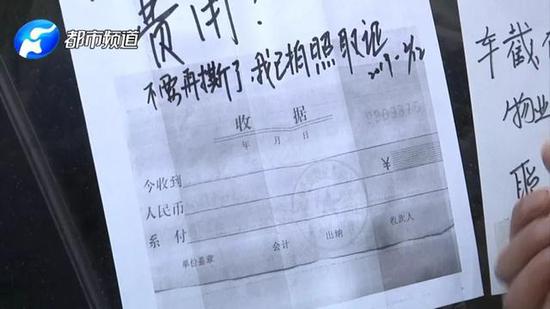 都市频道
费用!
不要再撕了,我已拍照取证
2019.2/12
收 据
年 月 日
今收到
¥
人民币
系 付
单位盖章 会计 出纳 收款人
车
物业